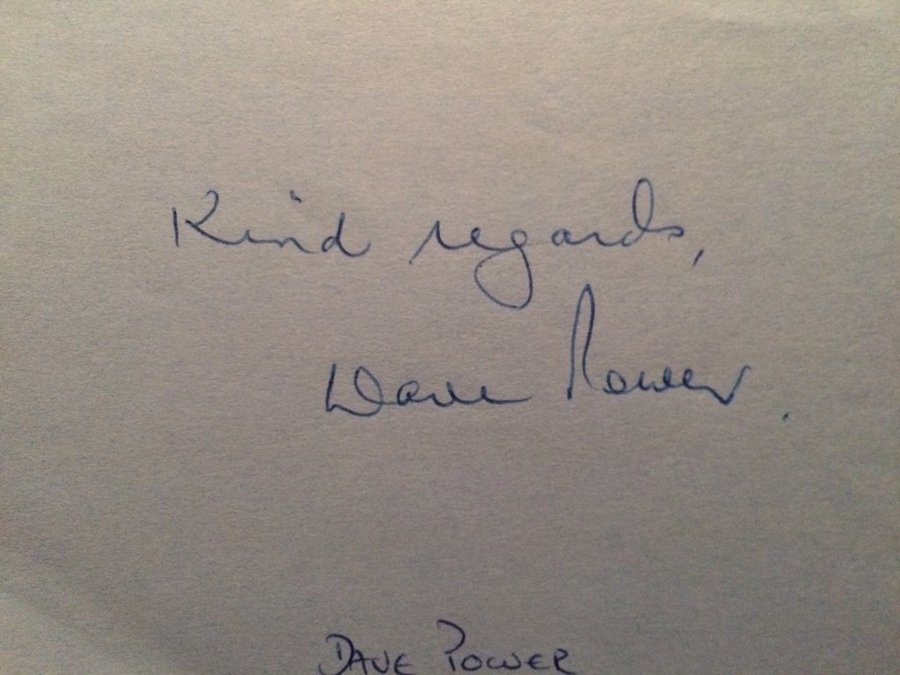 Kind regards,
Dave Power.
DAVE POWER